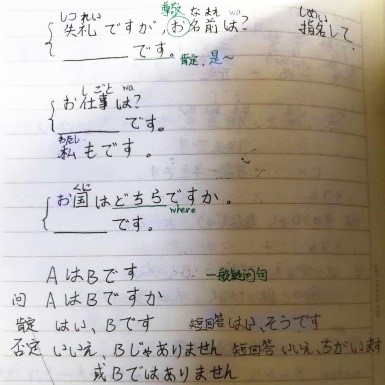 しつれい 尊敬 なまえ wa しめい
失礼ですが,お名前は? 指名して.
です。 肯定,是~
しごと wa
お仕事は?
です。
わたし
私もです。
くに
お国はどちらですか。
where
です。
AはBです 一般疑问句
问 AはBですか
肯定 はい、Bです 短回答 はい、そうです
否定 いいえ、Bじゃありません 短回答 いいえ、ちがいます
或Bではありません